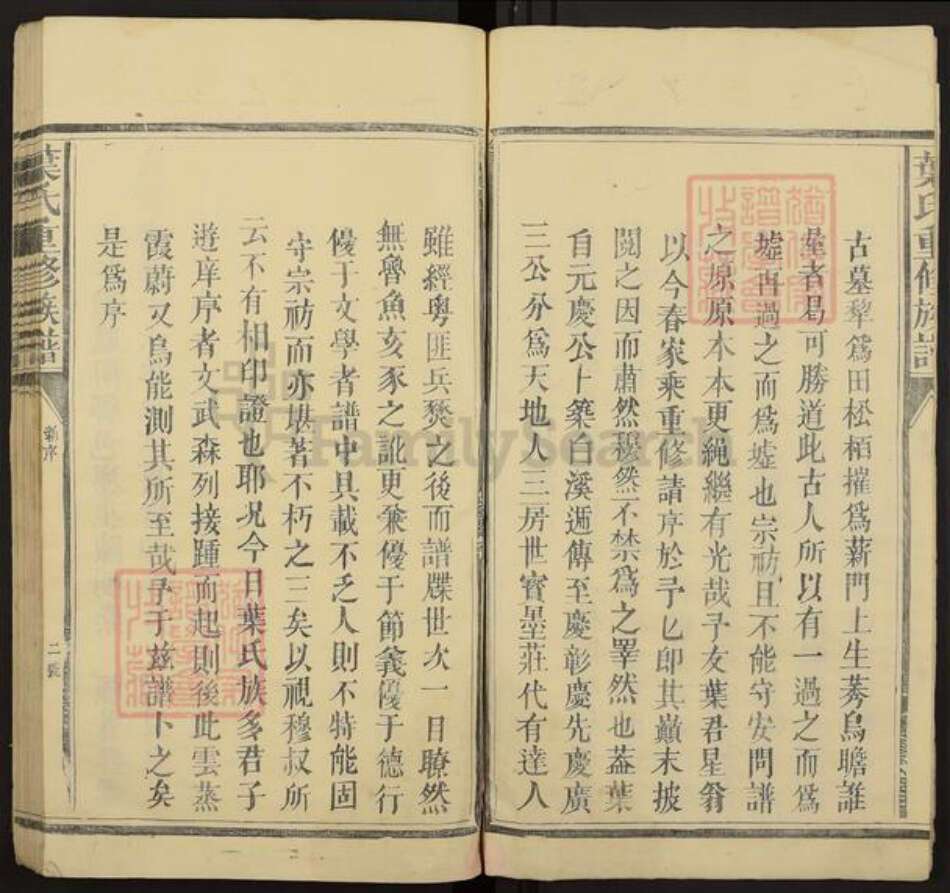 葉氏重修族譜
古墓犂爲田松栢摧爲薪門上生莠烏瞻誰
屋者曷可勝道此古人所以有一過之而爲
墟再過之而爲墟也宗祊且不能守安問譜
之原原本本更繩繼有光哉予友葉君星翁
以今春家乘重修請序於予乜卽其巔末披
閱之因而肅然穆然不禁爲之睪然也葢葉
自元慶公卜築白溪遞傳至慶彰慶先慶廣
三公分爲天地人三房世寶墨莊代有達人
雖經粤匪兵燹之後而譜牒世次一目瞭然
無魯魚亥豕之訛更兼優于節義優于德行
優于文學者譜中具載不乏人則不特能固
守宗祊而亦堪著不朽之三矣以視穆叔所
云不有相印證也耶况今日葉氏族多君子
遊庠序者文武森列接踵而起則後此雲蒸
霞蔚又烏能測其所至哉予于玆譜卜之矣
是爲序
葉氏重修族譜
新序
二
FamilySearch